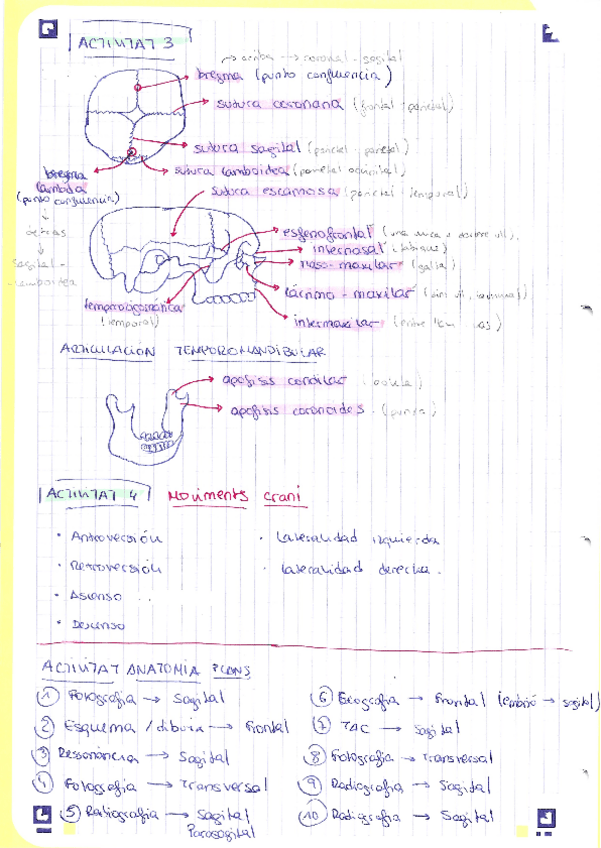 ACTIVITAT 3
→ arriba → coronal - sagital
bregma (punto confluencia)
sutura coronaria (frontal - parietal)
sutura sagital (parietal - parietal)
sutura lambdoidea (parietal occipital)
sutura escamosa (parietal - temporal)
bregma
lambda
(punto confluencia)
↓
detrás
↓
sagital -
lambdoidea
esfenofrontal
internasal
naso-maxilar
lácrimo-maxilar
intermaxilar
temporocigomática
(temporal)
ARTICULACIÓN TEMPOROMANDIBULAR
apofisis condilar
apofisis coronoides (punta)
ACTIVITAT 4 Moviments crani
· Anteoversión
· Retroversión
· Ascenso
· Descenso
· Lateralidad izquierda
· Lateralidad derecha.
ACTIVITAT ANATOMIA PLANS
1 Fotografia → Sagital
2 Esquema / dibuix → Frontal
3 Ressonància → Sagital
4 Fotografia → Transversal
5 Radiografia → Sagital
Parasagital
6 Ecografia → Frontal (embrió → sagital)
7 TAC → Sagital
8 Fotografia → Transversal
9 Radiografia → Sagital
10 Radiografia → Sagital